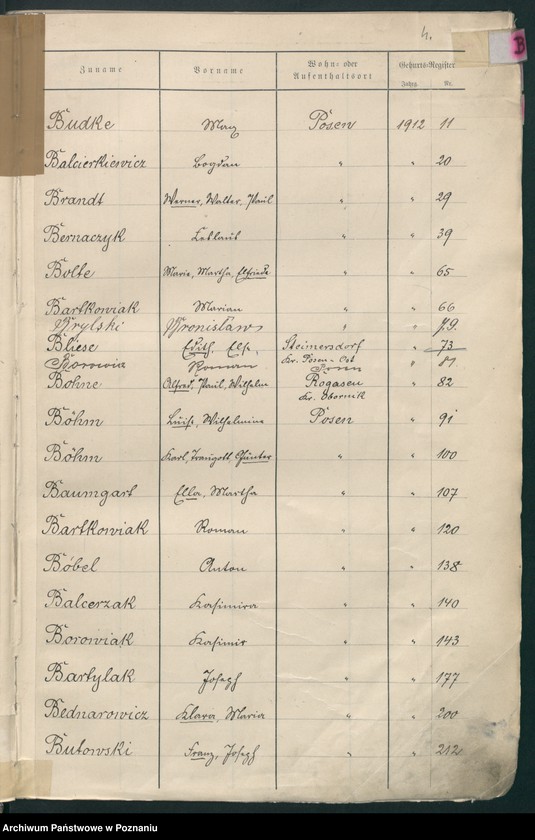 4.
B
Zuname Vorname Wohn- oder Aufenthaltsort Geburts-Register
Jahrg. Nr.
Budke Max Posen 1912 11
Balcierkiewicz Bogdan " " 20
Brandt Werner, Walter, Paul " " 29
Bernaczyk " " 39
Bolte Marie, Martha, Elfriede " " 65
Bartkowiak Marian " " 66
Brylski Bronisław " "
Bliese Edith, Else, Steimersdorf " 73
Kr. Posen-Ost
Roman "
Bohne Alfred, Paul, Wilhelm Rogasen " 82
Kr. Obornik
Böhm Luise, Wilhelmine Posen " 91
Böhm Karl, Traugott, Günter " " 100
Baumgart Ella, Martha " " 107
Bartkowiak Roman " " 120
Böbel Anton " " 138
Balcerzak Kasimira " " 140
Borowiak Kasimir " " 143
Bartylak Joseph " " 177
Bednarowicz Klara, Maria " " 200
Butowski Franz, Joseph " " 212
Archiwum Państwowe w Poznaniu